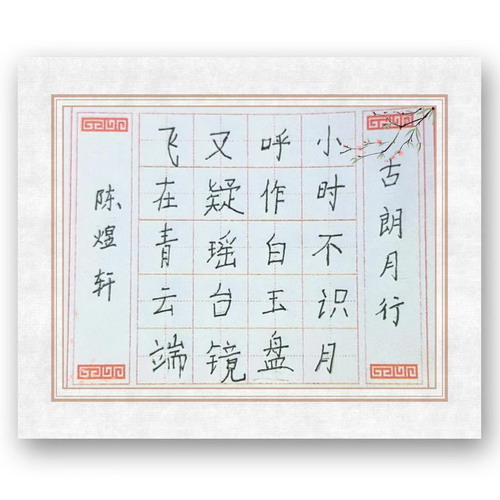 古朗月行
小时不识月
呼作白玉盘
又疑瑶台镜
飞在青云端
陈煜轩